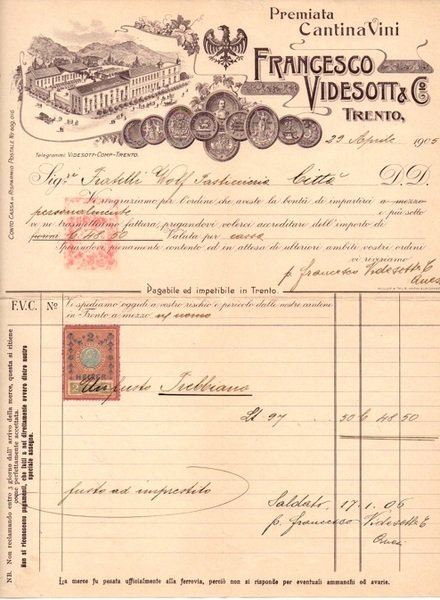 Premiata
Cantina Vini
FRANCESCO
VIDESOTT & Cio
TRENTO,
29 Aprile 1905
Telegrammi: VIDESOTT-COMP-TRENTO.
CONTO CASSA DI RISPARMIO POSTALE Nr 809,016
Sigri Fratelli Wolf Pasticceria Città D.D.
Vi ringraziamo per l'ordine che aveste la bontà di impartirci a mezzo
personalmente e più sotto
vi ne trasmettiamo fattura, pregandovi volerci accreditare dell'importo di
fiorini Valuta per cassa
Sperandovi pienamente contento ed in attesa di ulteriori ambiti vostri ordini
vi riveriamo
p. Francesco Videsott & C
Pagabile ed impetibile in Trento.
F.V.C. No
Vi spediamo oggidì a vostro rischio e pericolo dalle nostre cantine
in Trento a mezzo uomo
2
HELLER
Un fusto Trebbiano
Lt 97 50 48 50
fusto ad imprestito
Saldato 17.1.06
p. Francesco Videsott & C
NB. Non reclamando entro 3 giorni dall' arrivo della merce, questa si ritiene
come perfettamente accettata.
Non si riconoscono pagamenti, che fatti a noi direttamente ovvero dietro nostre
speciale assegno.
La merce fu pesata ufficialmente alla ferrovia, perciò non si risponde per eventuali ammanchi od avarie.